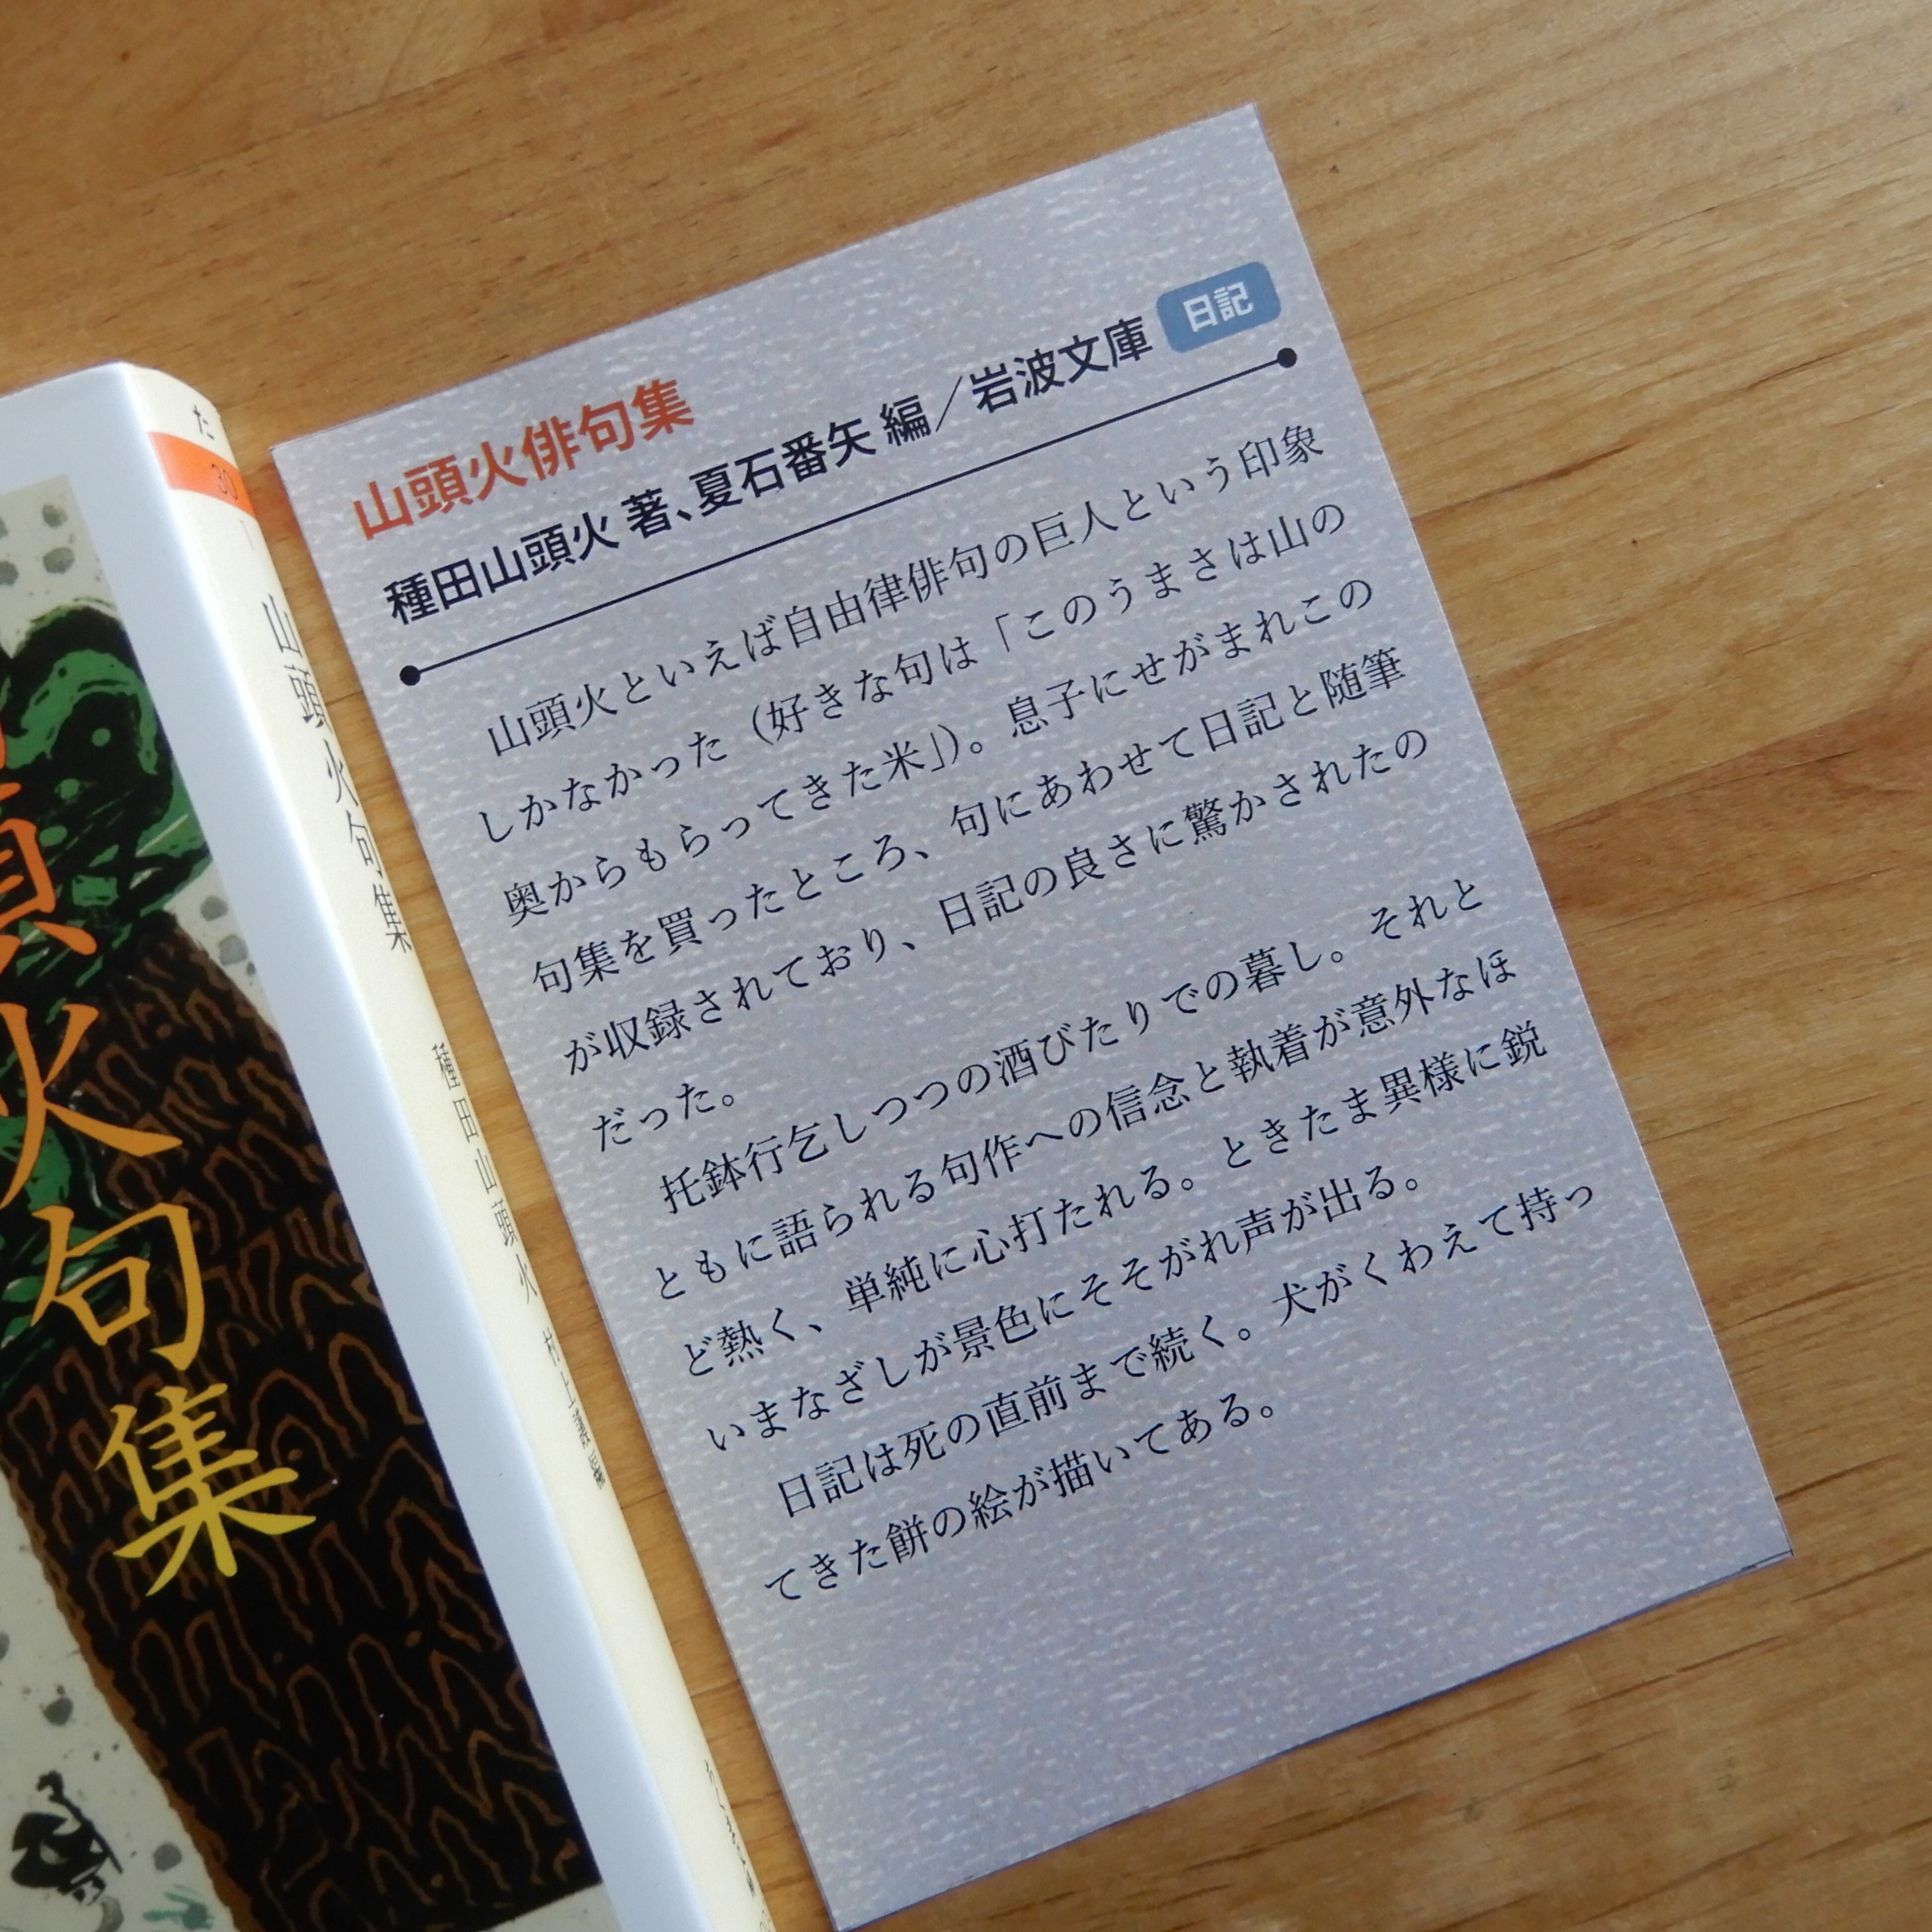 山頭火俳句集
種田山頭火 著、夏石番矢 編／岩波文庫 日記
山頭火といえば自由律俳句の巨人という印象
しかなかった（好きな句は「このうまさは山の
奥からもらってきた米」）。息子にせがまれこの
句集を買ったところ、句にあわせて日記と随筆
が収録されており、日記の良さに驚かされたの
だった。
托鉢行乞しつつの酒びたりでの暮し。それと
ともに語られる句作への信念と執着が意外なほ
ど熱く、単純に心打たれる。ときたま異様に鋭
いまなざしが景色にそそがれ声が出る。
日記は死の直前まで続く。犬がくわえて持っ
てきた餅の絵が描いてある。
た
30
1
山頭火句集
種田山頭火
村上護
頭火句集